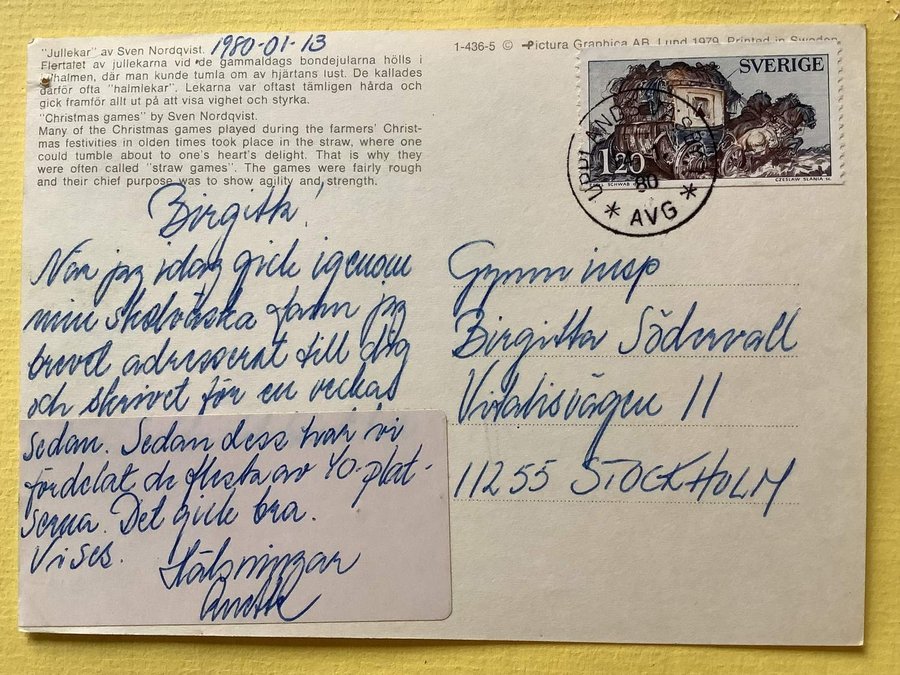 "Jullekar" av Sven Nordqvist. 1980-01-13
Flertalet av jullekarna vid de gammaldags bondejularna hölls i
julhalmen, där man kunde tumla om av hjärtans lust. De kallades
därför ofta "halmlekar". Lekarna var oftast tämligen hårda och
gick framför allt ut på att visa vighet och styrka.
"Christmas games" by Sven Nordqvist.
Many of the Christmas games played during the farmers' Christ-
mas festivities in olden times took place in the straw, where one
could tumble about to one's heart's delight. That is why they
were often called "straw games". The games were fairly rough
and their chief purpose was to show agility and strength.
1-436-5 © Pictura Graphica AB, Lund 1979. Printed in Sweden
SVERIGE
1.20
SCHWAB
CZESLAW SLANIA sc.
80
* AVG *
Birgitta!
När jag idag gick igenom
min skolväska fann jag
brevet adresserat till dig
och skrivet för en veckas
sedan. Sedan dess har vi
fördelat de flesta av 40-plat-
serna. Det gick bra.
Vi ses.
Hälsningar
Gymn insp
Birgitta Södervall
Vitalisvägen 11
11255 STOCKHOLM